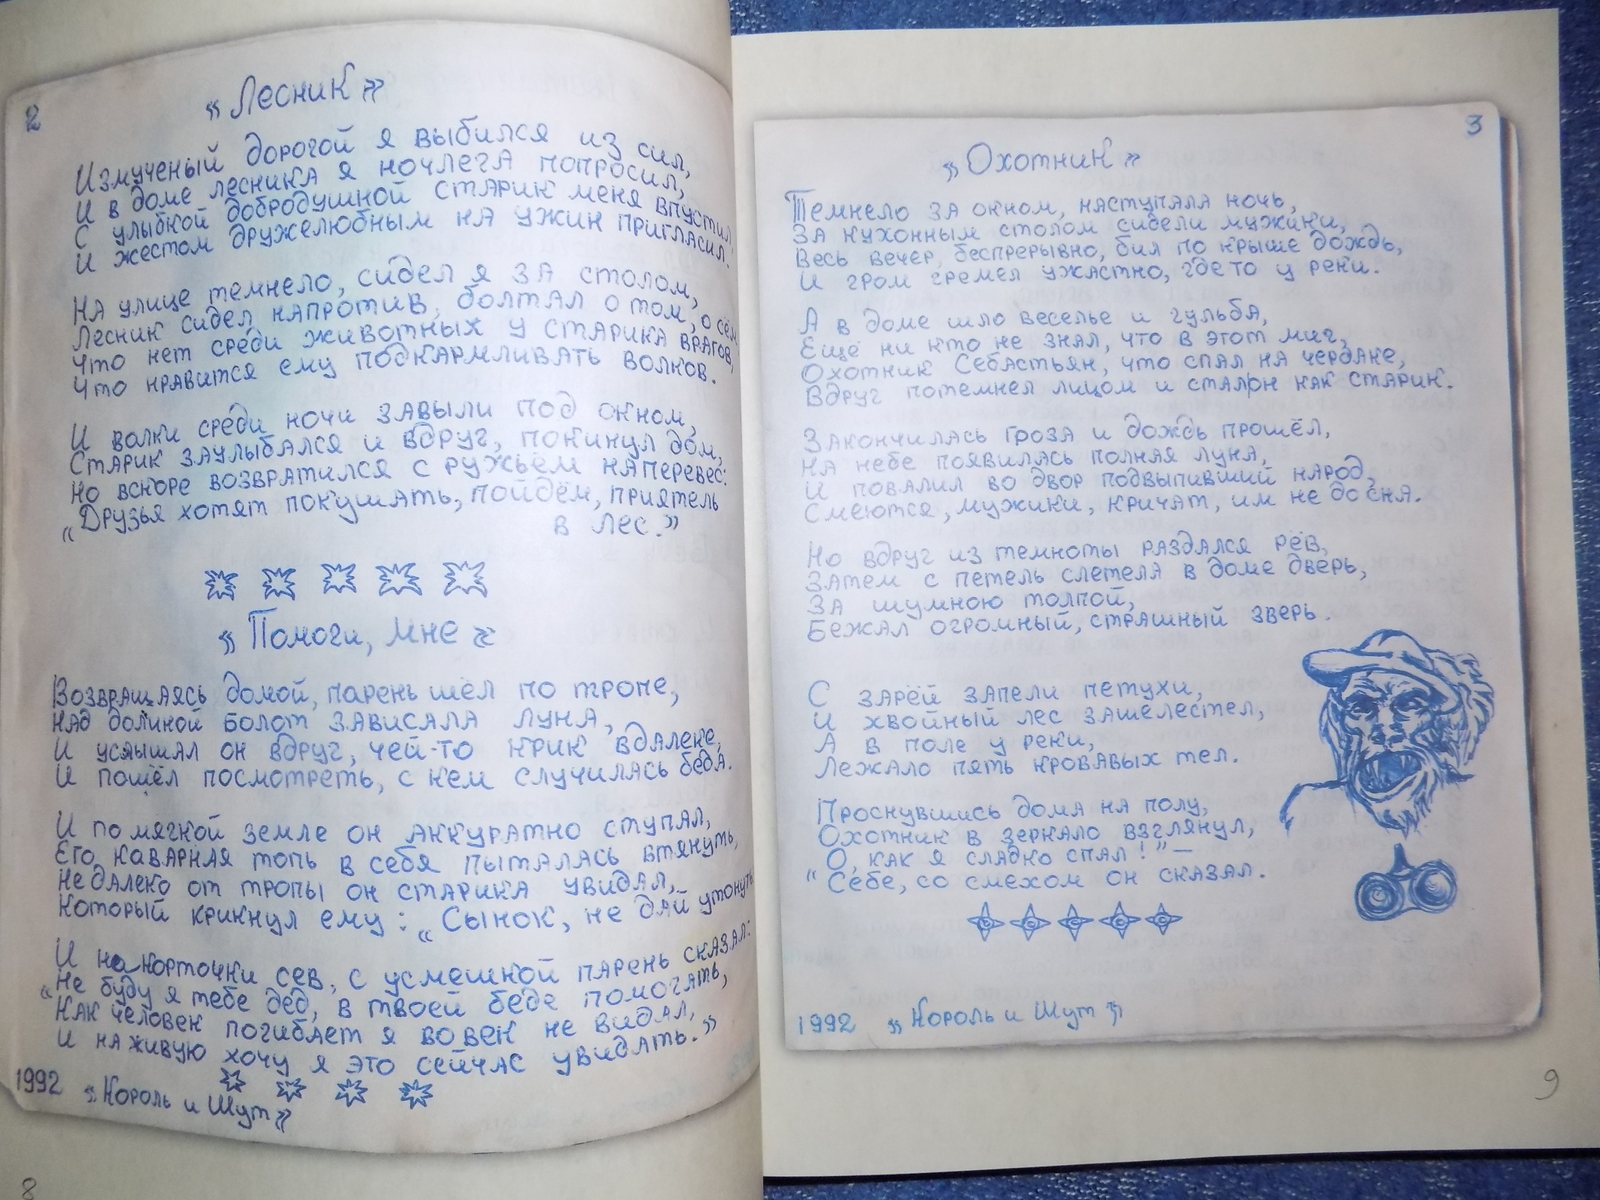 2
« Лесник »
Измученый дорогой я выбился из сил,
И в доме лесника я ночлега попросил,
С улыбкой добродушной старик меня впустил,
И жестом дружелюбным на ужин пригласил.
На улице темнело, сидел я за столом,
Лесник сидел напротив, болтал о том, о сём,
Что нет среди животных у старика врагов,
Что нравится ему подкармливать волков.
И волки среди ночи завыли под окном,
Старик заулыбался и вдруг, покинул дом,
Но вскоре возвратился с ружьём наперевес:
„Друзья хотят покушать, пойдём, приятель
в лес."
« Помоги, мне »
Возвращаясь домой, парень шёл по тропе,
Над долиной болот зависала луна,
И услышал он вдруг, чей-то крик вдалеке,
И пошёл посмотреть, с кем случилась беда.
И по мягкой земле он аккуратно ступал,
Его каварная топь в себя пыталась втянуть,
Не далеко от тропы он старика увидал,
Который крикнул ему: „Сынок, не дай утонуть
И на корточки сев, с усмешкой парень сказал:
„Не буду я тебе дед, в твоей беде помогать,
Как человек погибает я во век не видал,
И на живую хочу я это сейчас увидать."
1992 « Король и Шут »
8
3
„ Охотник "
Темнело за окном, наступала ночь,
За кухонным столом сидели мужики,
Весь вечер, беспрерывно, бил по крыше дождь,
И гром гремел ужастно, где то у реки.
А в доме шло веселье и гульба,
Ещё ни кто не знал, что в этот миг,
Охотник Себастьян, что спал на чердаке,
Вдруг потемнел лицом и стал он как старик.
Закончилась гроза и дождь прошёл,
На небе появилась полная луна,
И повалил во двор подвыпивший народ,
Смеются, мужики, кричат, им не до сна.
Но вдруг из темноты раздался рёв,
Затем с петель слетела в доме дверь,
За шумною толпой,
Бежал огромный, страшный зверь.
С зарёй запели петухи,
И хвойный лес зашелестел,
А в поле у реки,
Лежало пять кровавых тел.
Проснувшись дома на полу,
Охотник в зеркало взглянул,
О, как я сладко спал!" —
„ Себе, со смехом он сказал.
1992 „ Король и Шут "
9